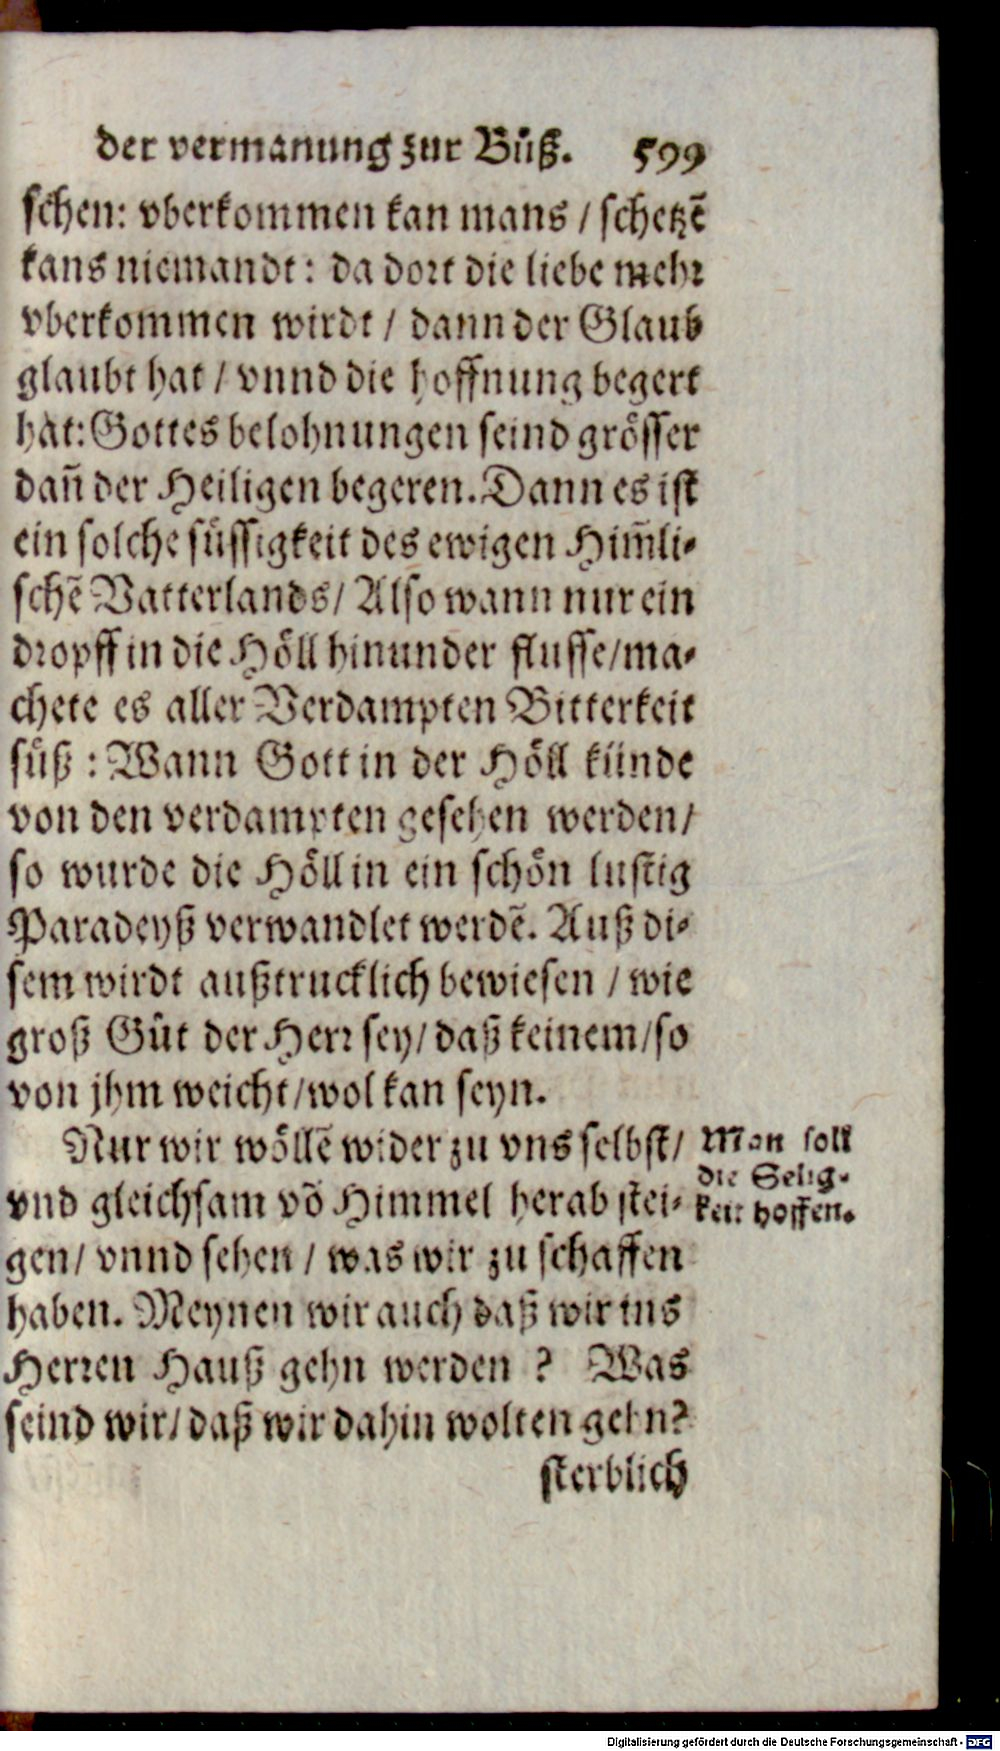 der vermanung zur Bůß. 599
schen: vberkommen kan mans / schetzē
kans niemandt: da dort die liebe mehr
vberkommen wirdt / dann der Glaub
glaubt hat / vnnd die hoffnung begert
hat: Gottes belohnungen seind grösser
dañ der Heiligen begeren. Dann es ist
ein solche süssigkeit des ewigen Him̃li-
schē Vatterlands / Also wann nur ein
dropff in die Höll hinunder flusse / ma-
chete es aller Verdampten Bitterkeit
süß : Wann Gott in der Höll künde
von den verdampten gesehen werden /
so wurde die Höll in ein schön lustig
Paradeyß verwandlet werdē. Auß di-
sem wirdt außtrucklich bewiesen / wie
groß Gůt der Herr sey / daß keinem / so
von jhm weicht / wol kan seyn.
Nur wir wöllē wider zu vns selbst /
vnd gleichsam võ Himmel herab stei-
gen / vnnd sehen / was wir zu schaffen
haben. Meynen wir auch daß wir ins
Herren Hauß gehn werden ? Was
seind wir / daß wir dahin wolten gehn?
sterblich
Man soll
die Selig-
keit hoffen.
Digitalisierung gefördert durch die Deutsche Forschungsgemeinschaft - DFG